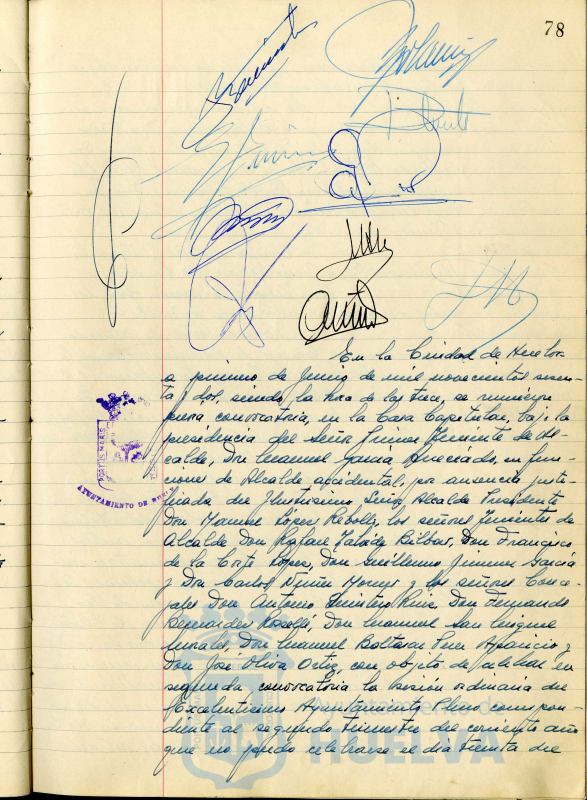 78
En la Ciudad de Huelva
a primero de Junio de mil novecientos seten-
ta y dos, siendo la hora de las trece, se reunieron
convocatoria, en la Casa Capitular, bajo la
presidencia del Señor Primer Teniente de Al-
calde, Don Manuel García, en fun-
ciones de Alcalde accidental, por ausencia justi-
ficada del Ilustrísimo Señor Alcalde Presidente
Don Manuel López Rebollo, los señores Tenientes de
Alcalde Don Rafael Bilbao, Don Francisco
de la Corte López, Don Guillermo Jimenez García
y Don Carlos y los señores Conce-
jales Don Antonio Quintero Ruiz, Don Fernando
Bermudez Roselló, Don Manuel San
Don Manuel Baltasar Pérez Aparicio y
Don José Oliva Ortiz, con objeto de celebrar en
segunda convocatoria la sesión ordinaria del
Excelentísimo Ayuntamiento Pleno correspon-
diente al segundo trimestre del corriente año
que no pudo celebrarse el día treinta del
PORTUS MARIS
AYUNTAMIENTO DE
Ayuntamiento de
HUELVA